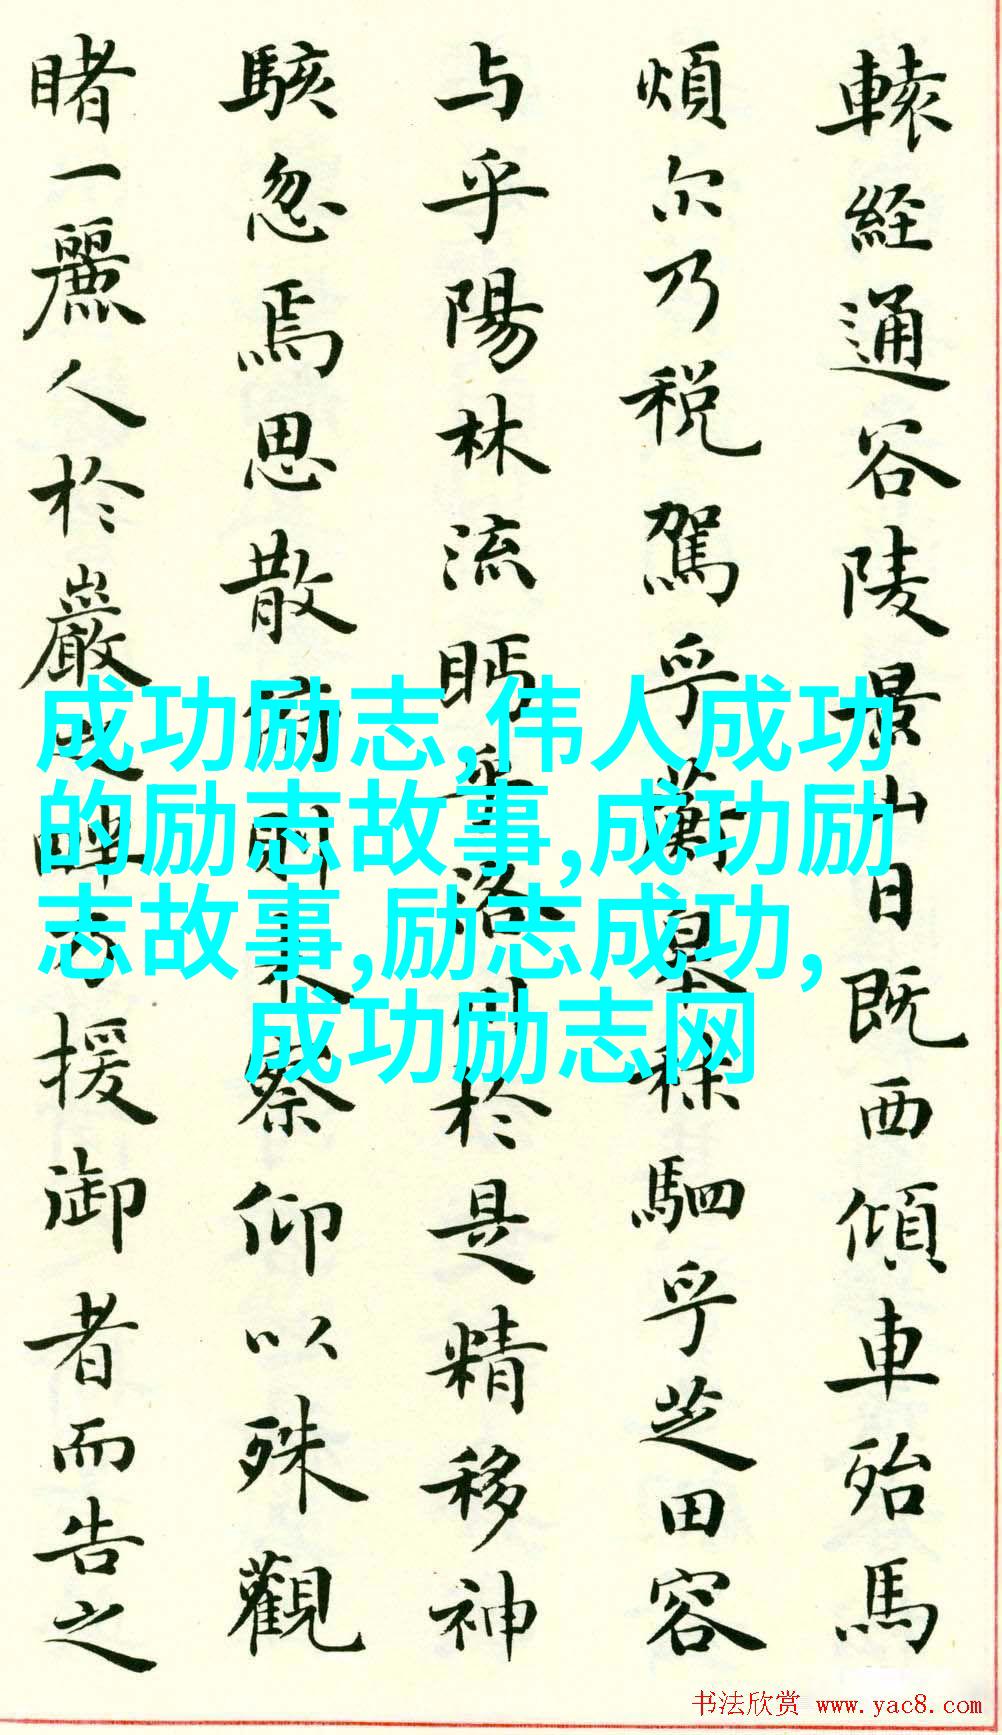 轅経通谷陵景山日既西傾車殆馬
煩尔乃税駕乎蘅皋秣駟乎芝田容
与乎陽林流眄乎洛川於是精移神
駭忽焉思散俯則未察仰以殊觀
睹一麗人於巖之畔乃援御者而告之
成功励志,伟人成功
的励志故事,成功励
志故事,励志成功,
成功励志网
书法欣赏 www.yac8.com